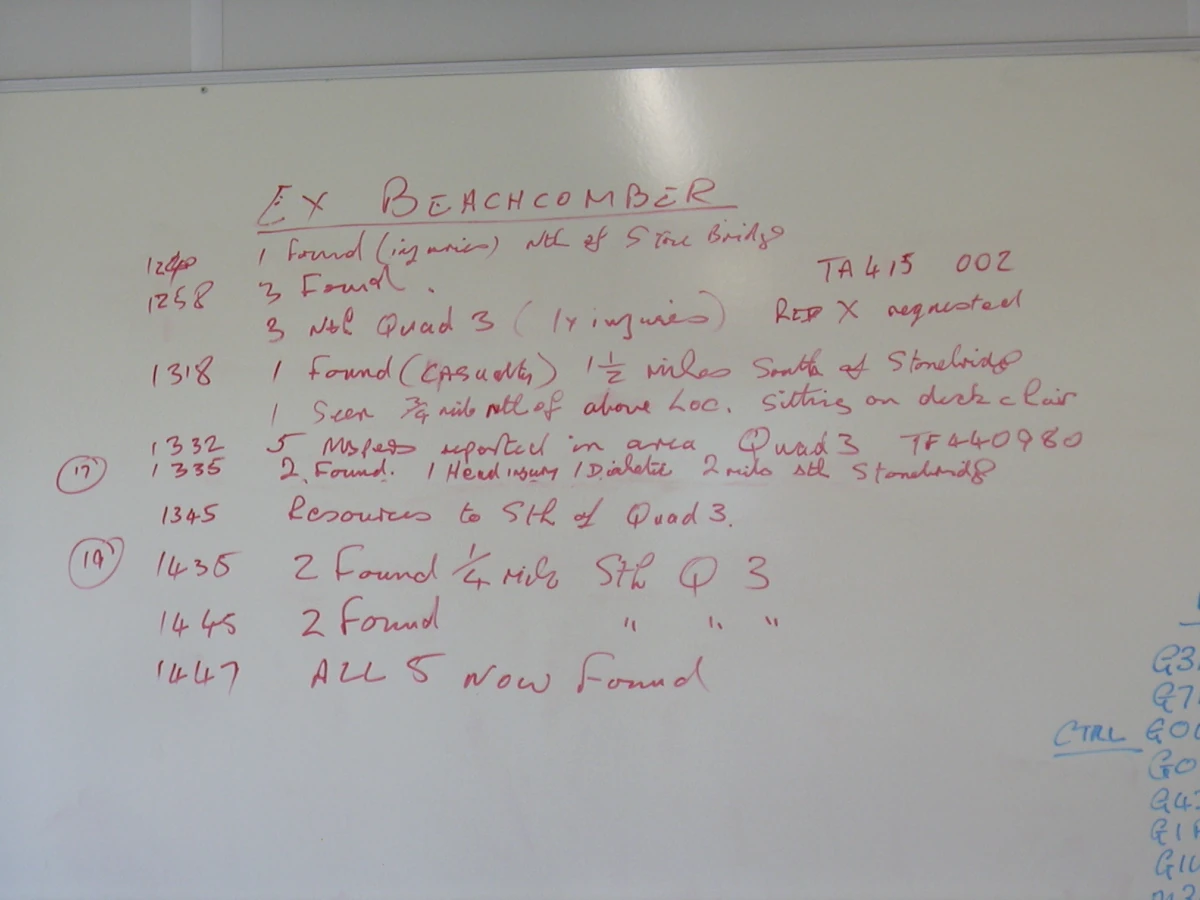 EX BEACHCOMBER
1240 1 Found (injuries) Nth of Stone Bridge
1258 3 Found. TA 415 002
3 Nth Quad 3 (1x injuries) RED X requested
1318 1 Found (CASualty) 1 1/2 miles South of Stonebridge
1 Seen 3/4 mile nth of above Loc. sitting on deck chair
1332 5 Mispers reported in area Quad 3 TF440980
17 1335 2 Found. 1 Head injury 1 Diabetic 2 mile sth Stonebridge
1345 Resources to Sth of Quad 3.
19 1435 2 Found 1/4 mile Sth Q 3
1445 2 Found " " "
1447 ALL 5 NOW Found
G3
G7
CTRL G0
G0
G43
G1
G1